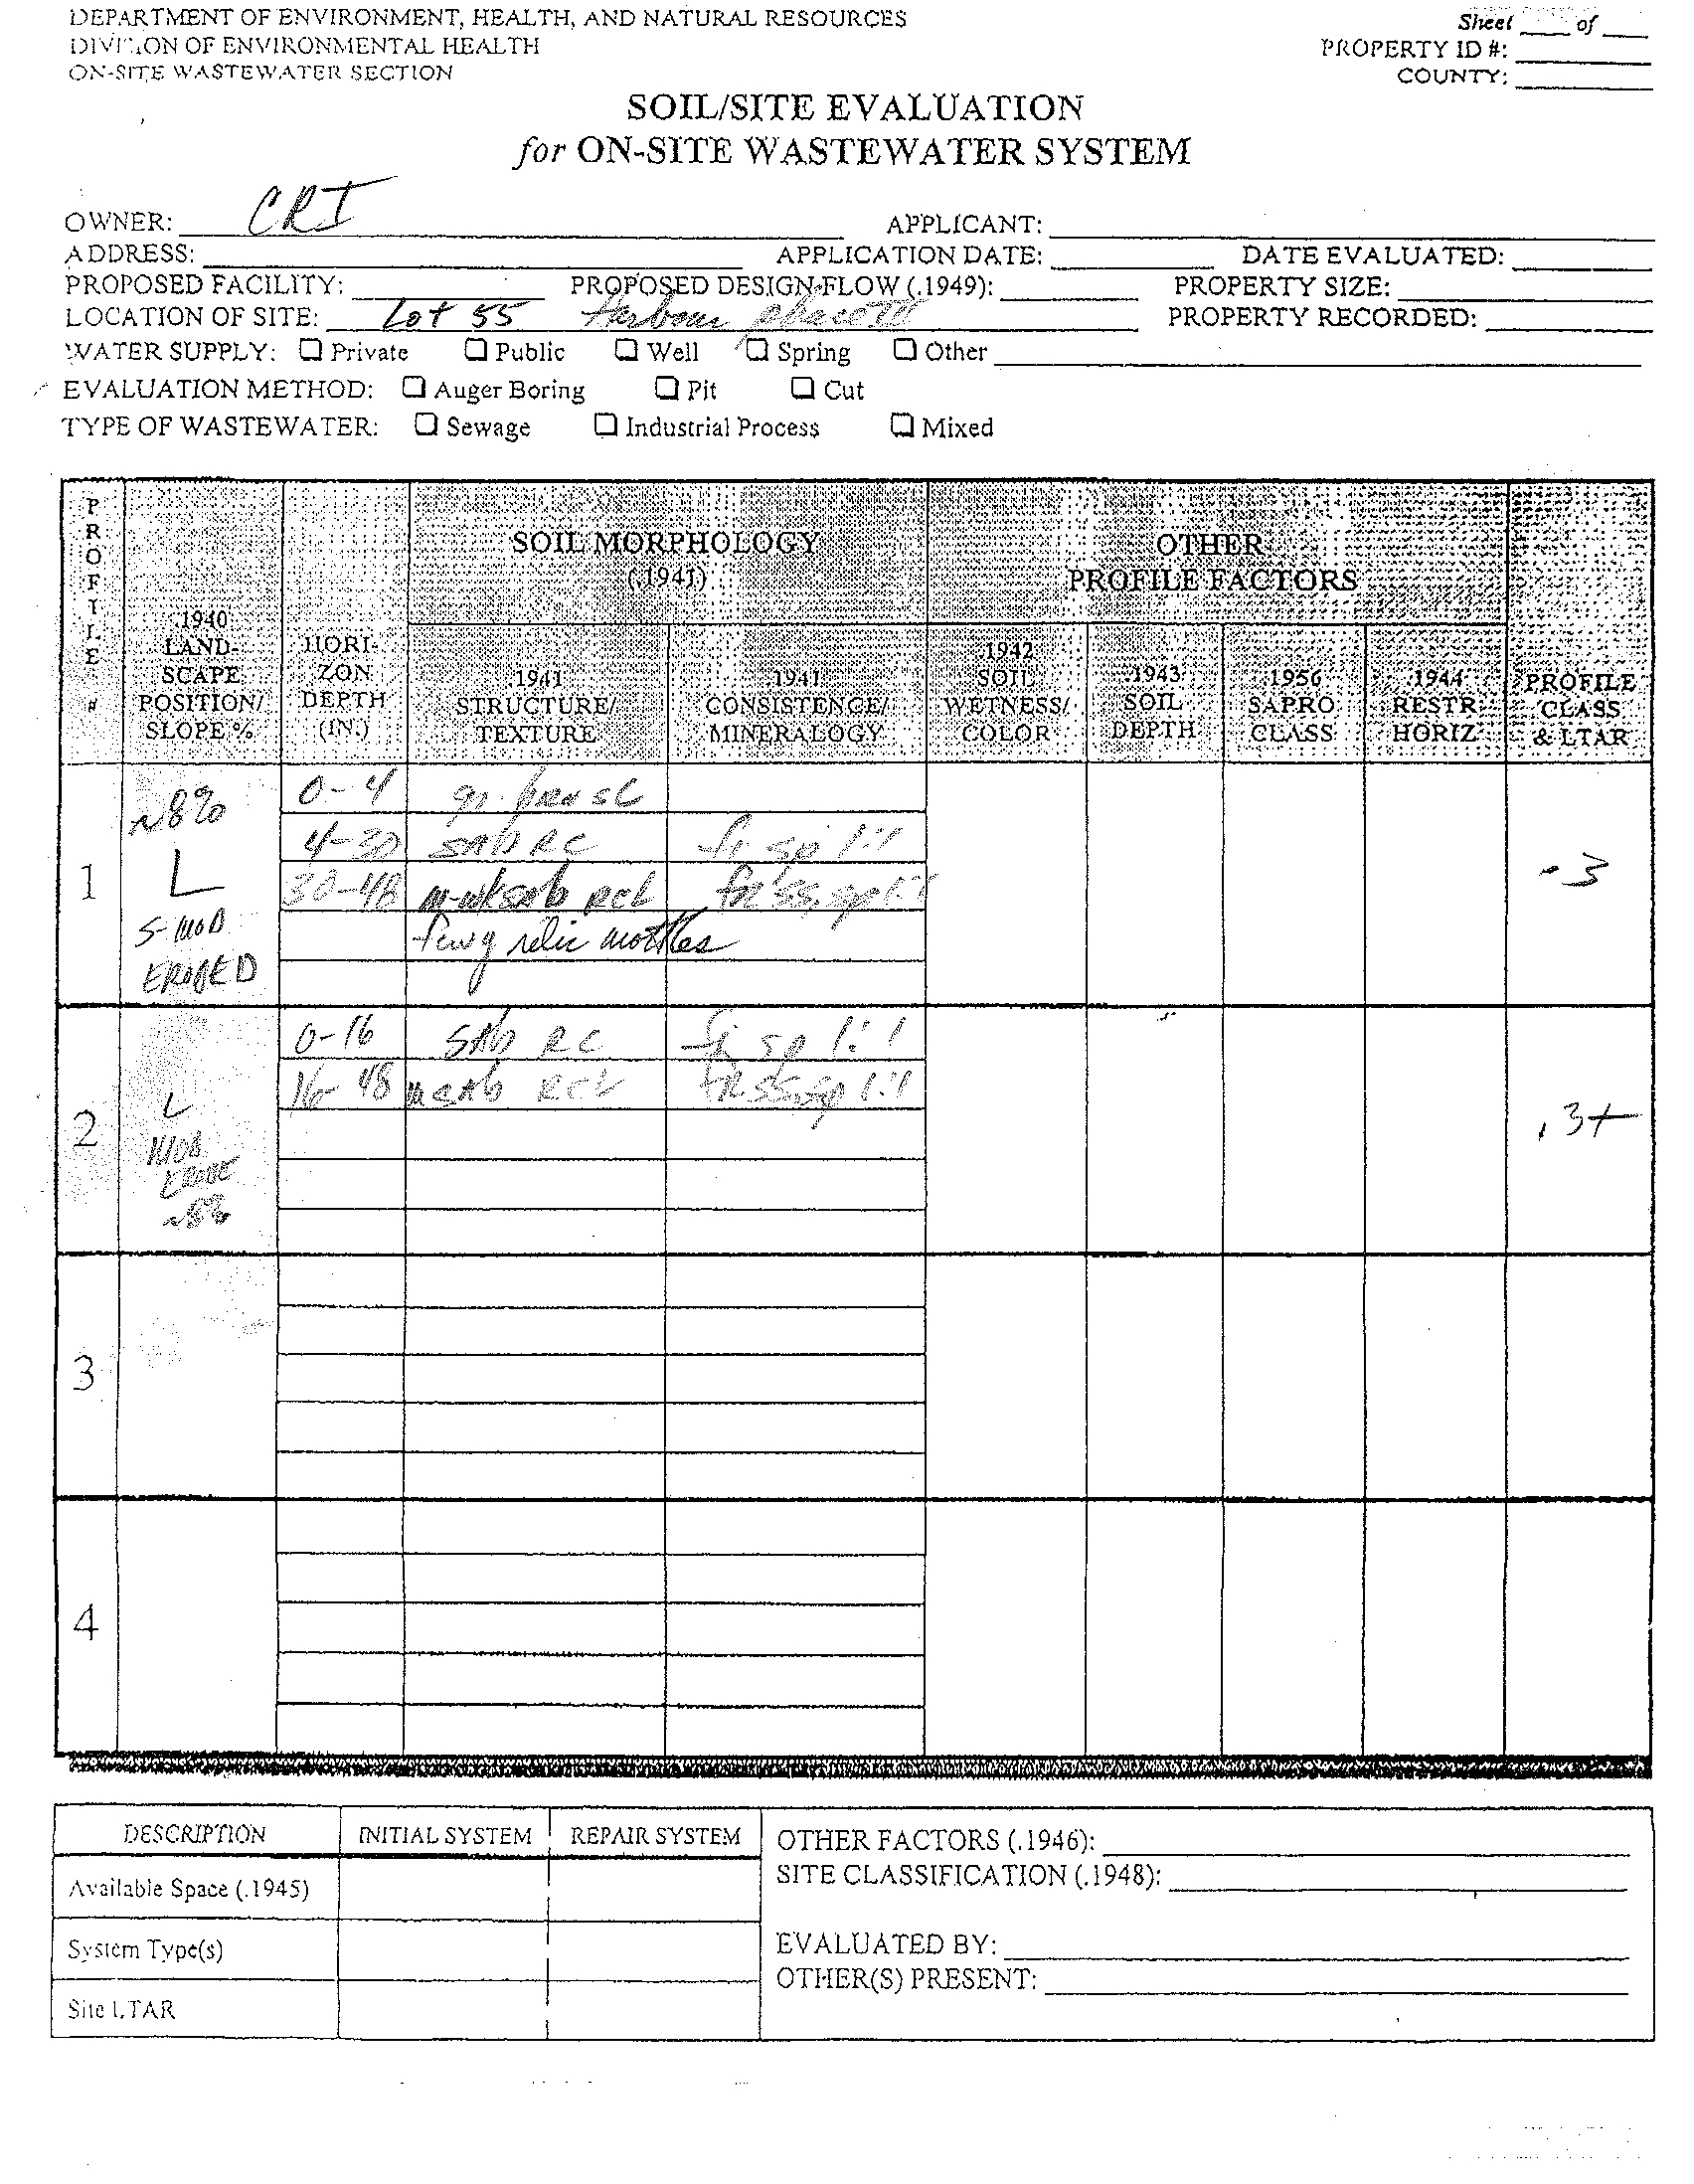 DEPARTMENT OF ENVIRONMENT, HEALTH, AND NATURAL RESOURCES
DIVISION OF ENVIRONMENTAL HEALTH
ON-SITE WASTEWATER SECTION
Sheet ____ of ____
PROPERTY ID #:
COUNTY:
SOIL/SITE EVALUATION
for ON-SITE WASTEWATER SYSTEM
OWNER: CRI APPLICANT:
ADDRESS: APPLICATION DATE: DATE EVALUATED:
PROPOSED FACILITY: PROPOSED DESIGN FLOW (.1949): PROPERTY SIZE:
LOCATION OF SITE: Lot 55 Harbour PROPERTY RECORDED:
WATER SUPPLY: ☐ Private ☐ Public ☐ Well ☐ Spring ☐ Other
EVALUATION METHOD: ☐ Auger Boring ☐ Pit ☐ Cut
TYPE OF WASTEWATER: ☐ Sewage ☐ Industrial Process ☐ Mixed
PROFILE #
.1940 LAND-SCAPE POSITION/ SLOPE %
HORI-ZON DEPTH (IN.)
SOIL MORPHOLOGY (.1941)
.1941 STRUCTURE/ TEXTURE
.1941 CONSISTENCE/ MINERALOGY
OTHER PROFILE FACTORS
.1942 SOIL WETNESS/ COLOR
.1943 SOIL DEPTH
.1956 SAPRO CLASS
.1944 RESTR HORIZ
PROFILE CLASS & LTAR
1
~8%
L
S-MOD
ERODED
0-4 gr. SL
4-30 SAB RC fi sp 1:1
30-48 m-wk sab RCL fr ss, sp 1:1
few g relic mottles
.3
2
L
MOD
ERODE
~8%
0-16 SAB RC fi sp 1:1
16-48 m SAB RCL fr ss, sp 1:1
.3+
3
4
DESCRIPTION INITIAL SYSTEM REPAIR SYSTEM
Available Space (.1945)
System Type(s)
Site LTAR
OTHER FACTORS (.1946):
SITE CLASSIFICATION (.1948):
EVALUATED BY:
OTHER(S) PRESENT: